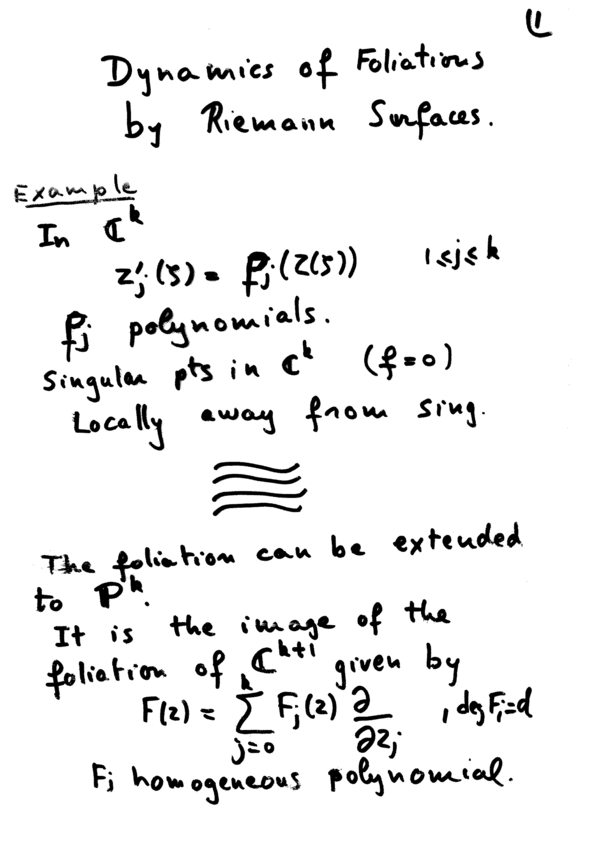 1
Dynamics of Foliations
by Riemann Surfaces.
Example
In ℂ^k
z'_j(ζ) = f_j(z(ζ)) 1≤j≤k
f_j polynomials.
Singular pts in ℂ^k (f=0)
Locally away from sing.
The foliation can be extended
to ℙ^k.
It is the image of the
foliation of ℂ^{k+1} given by
F(z) = ∑_{j=0}^k F_j(z) ∂/∂z_j , deg F_j=d
F_j homogeneous polynomial.